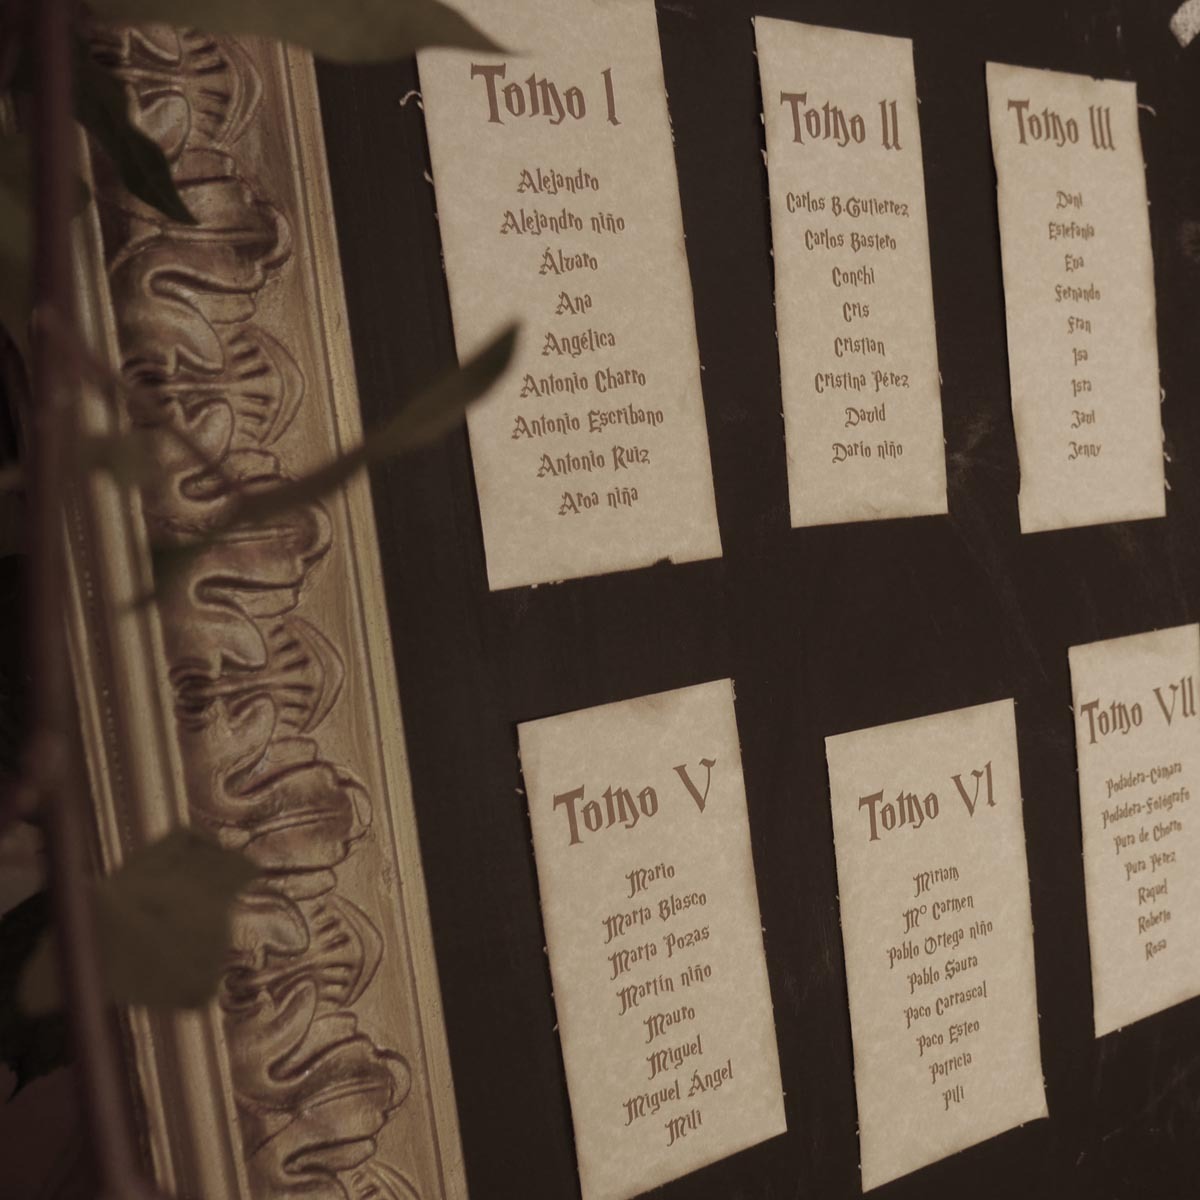 Tomo I
Alejandro
Alejandro niño
Álvaro
Ana
Angélica
Antonio Charro
Antonio Escribano
Antonio Ruiz
Aroa niña
Tomo II
Carlos B.Gutierrez
Carlos Bastero
Conchi
Cris
Cristian
Cristina Pérez
David
Darío niño
Tomo III
Dani
Estefanía
Eva
Fernando
Fran
Isa
Isra
Javi
Jenny
Tomo V
Mario
Marta Blasco
Marta Pozas
Martín niño
Mauro
Miguel
Miguel Ángel
Mili
Tomo VI
Miriam
Mº Carmen
Pablo Ortega niño
Pablo Saura
Paco Carrascal
Paco Esteo
Patricia
Pili
Tomo VII
Podadera-Cámara
Podadera-Fotógrafo
Pura de Chorro
Pura Pérez
Raquel
Roberto
Rosa